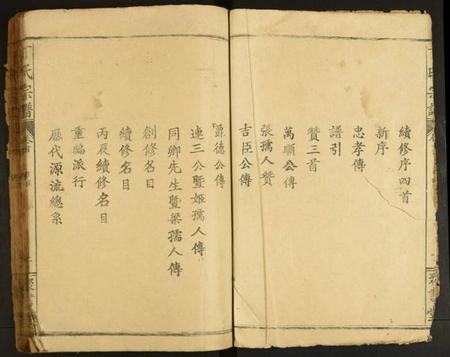 續修序四首
新序
忠孝傳
譜引
贊三首
萬順公傳
張孺人贊
吉臣公傳
爵德公傳
連三公暨姬孺人傳
同鄉先生暨梁孺人傳
創修名目
續修名目
丙辰續修名目
重編派行
歷代源流總系
氏宗譜
卷首